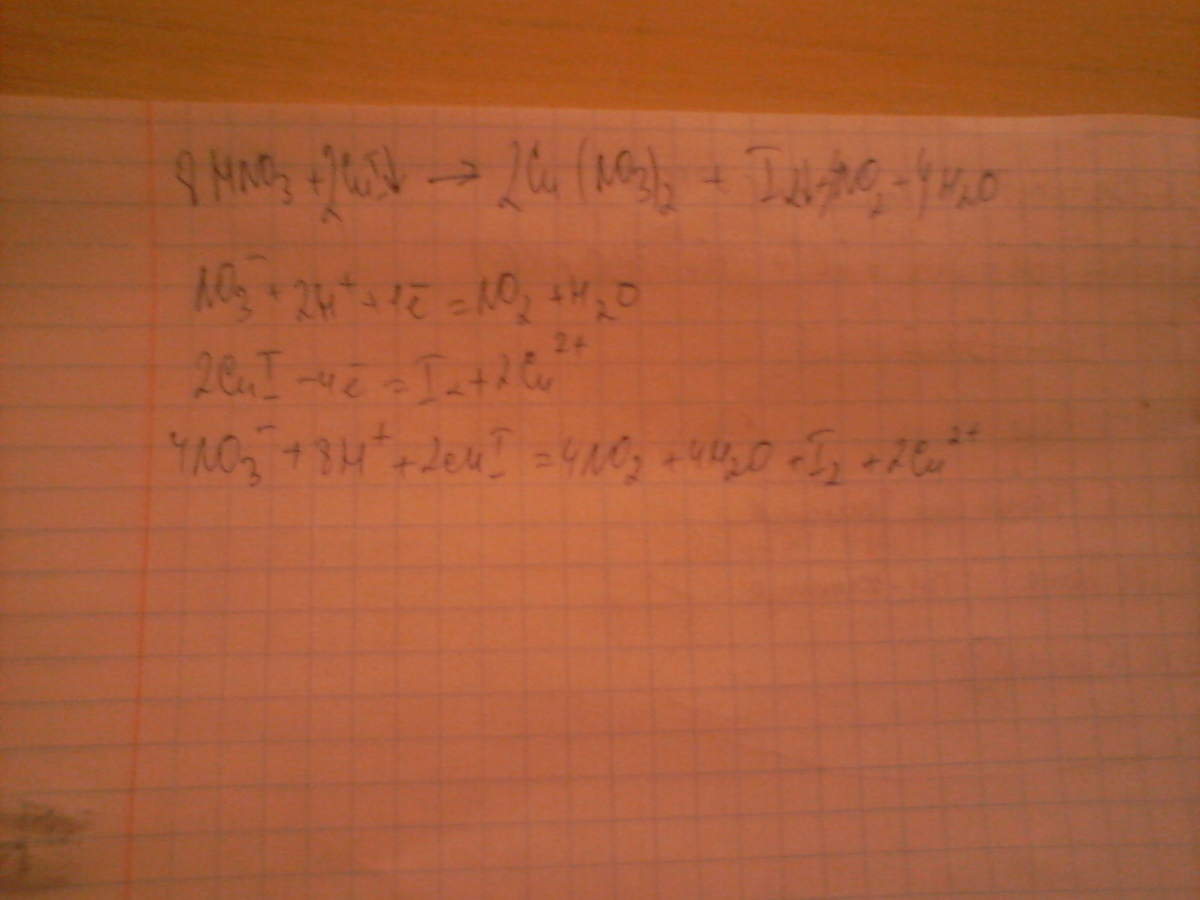 8HNO3 + 2CuI↓ → 2Cu(NO3)2 + I2↓ + 4NO2 + 4H2O
NO3⁻ + 2H⁺ + 1ē = NO2 + H2O
2CuI - 4ē = I2 + 2Cu²⁺
4NO3⁻ + 8H⁺ + 2CuI = 4NO2 + 4H2O + I2 + 2Cu²⁺